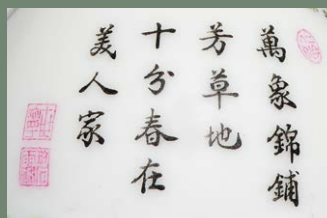 萬象錦鋪
芳草地
十分春在
美人家